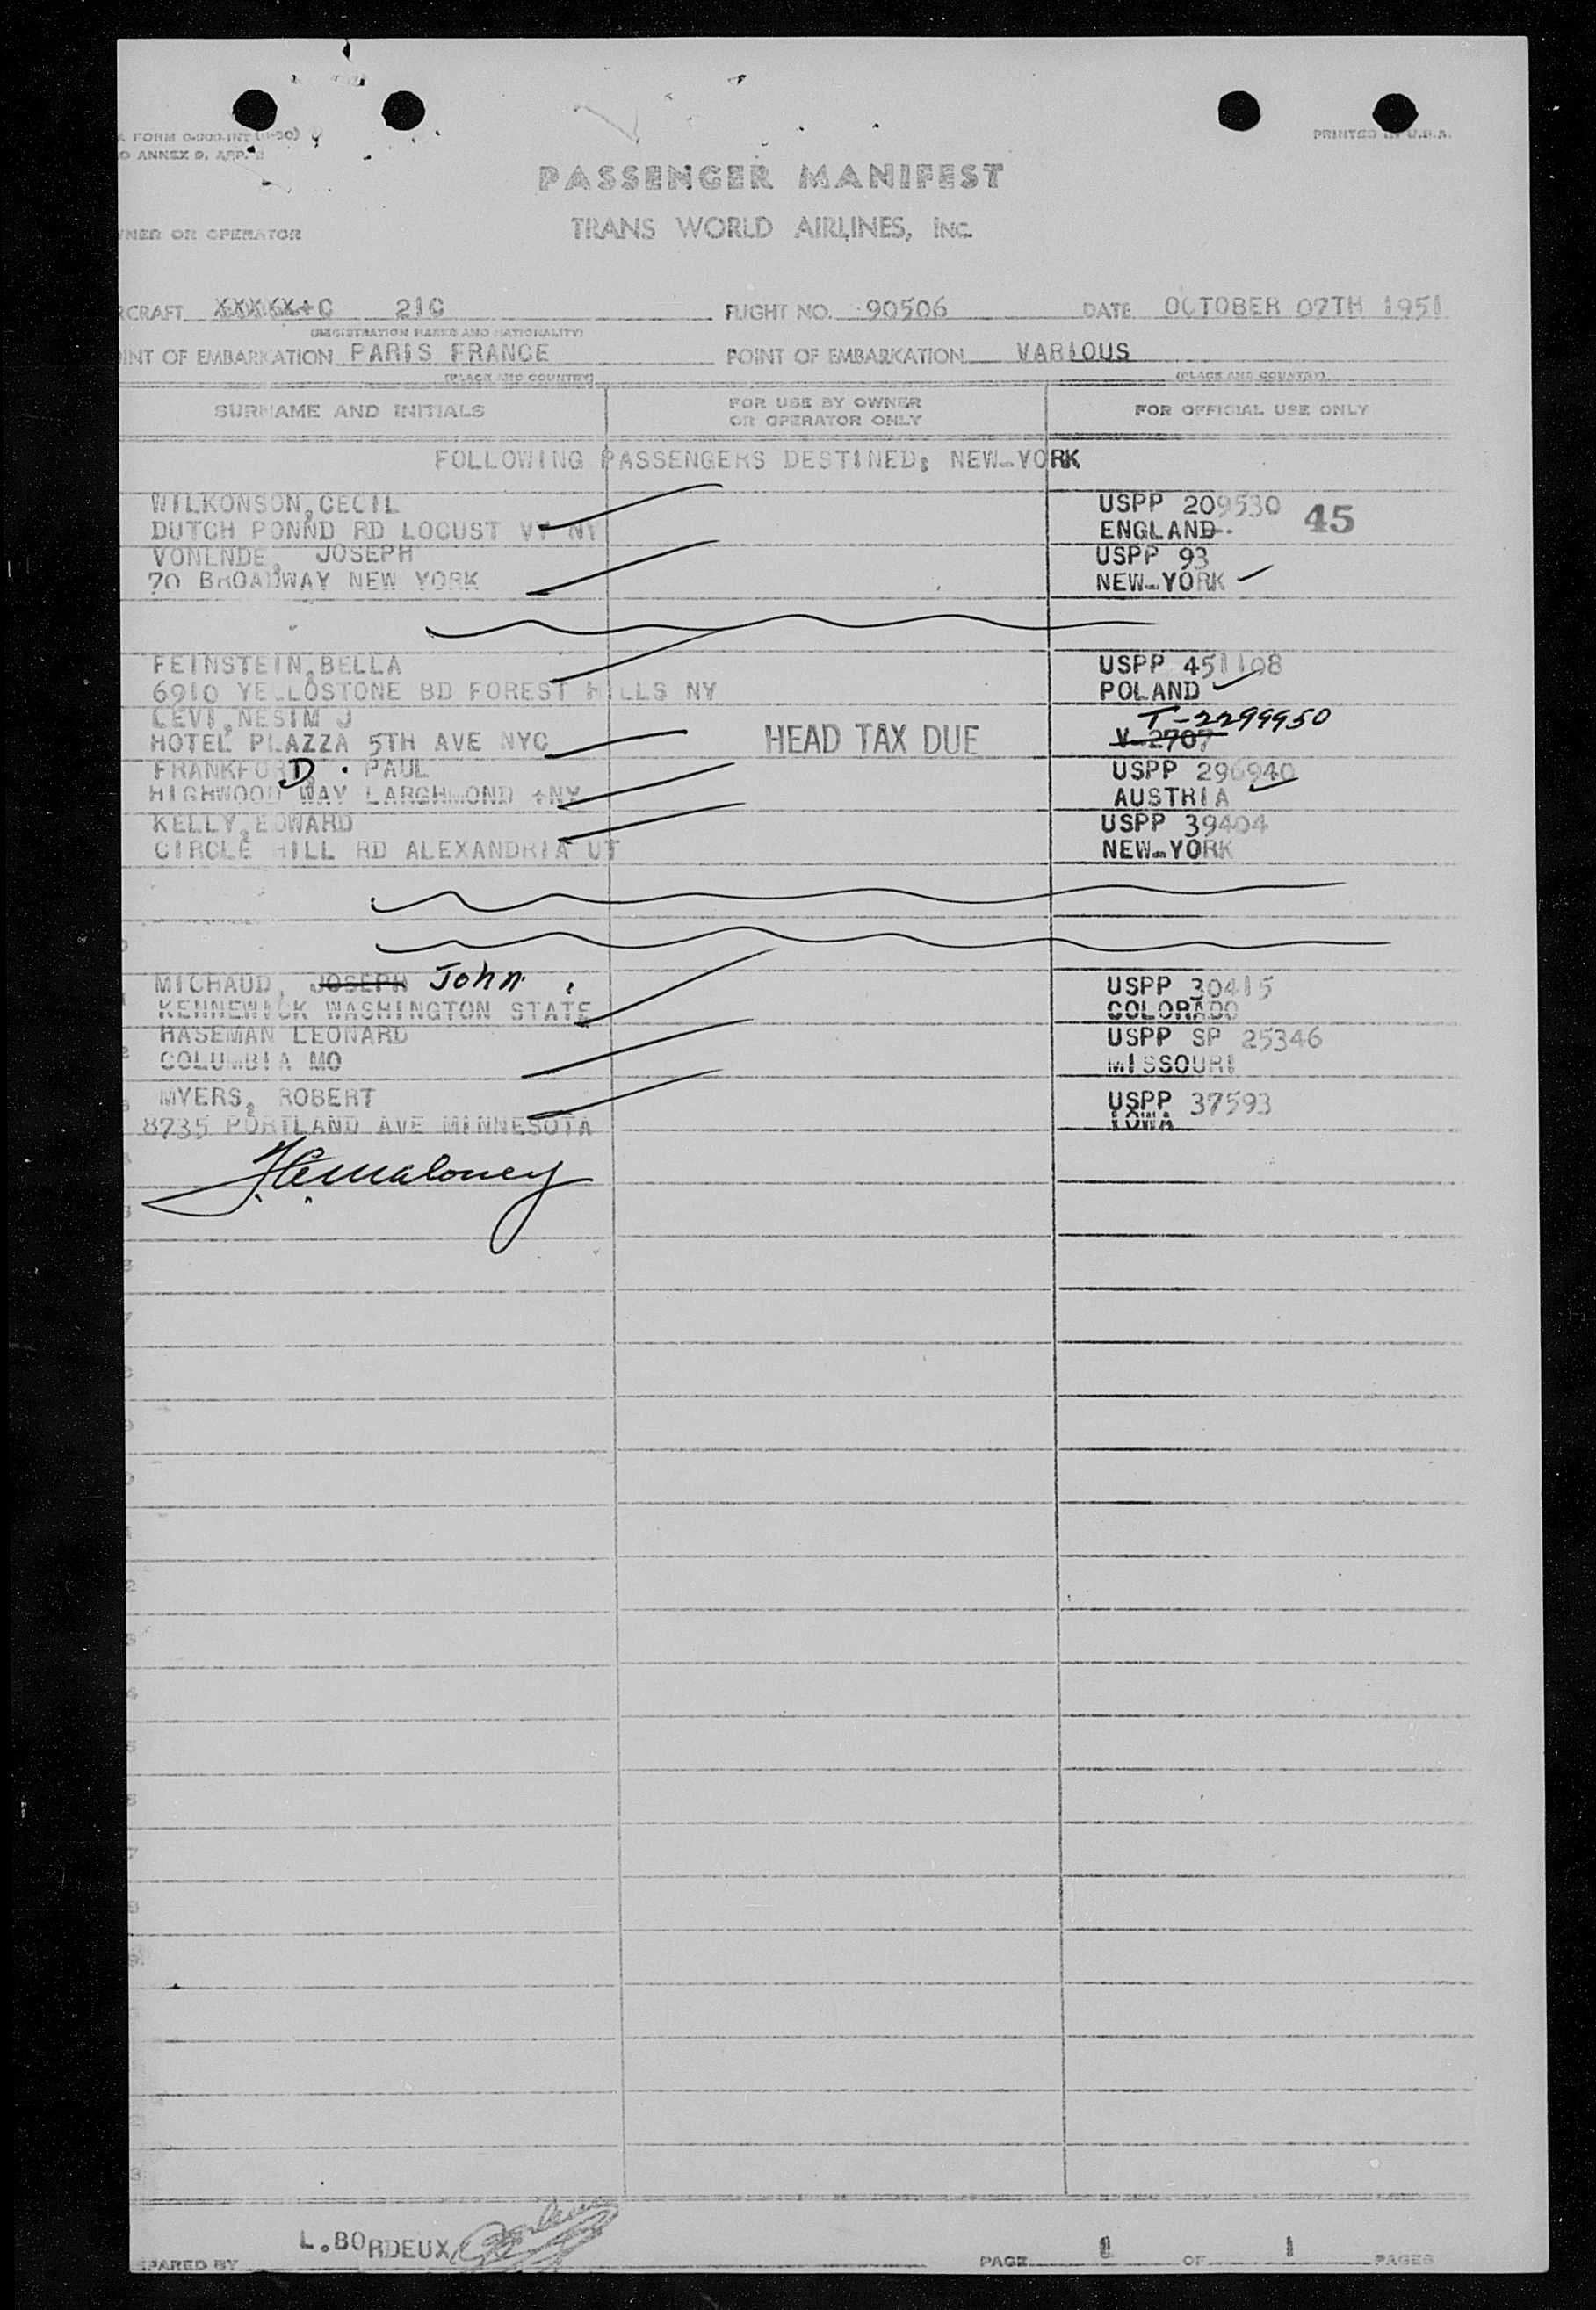 A FORM 0-900-INT
O ANNEX 9, APP. 2
PRINTED IN U.S.A.
PASSENGER MANIFEST
TRANS WORLD AIRLINES, INC.
NER OR OPERATOR
RCRAFT XXX6X+C 21C FLIGHT NO. 90506 DATE OCTOBER 07TH 1951
(REGISTRATION MARKS AND NATIONALITY)
INT OF EMBARKATION PARIS FRANCE POINT OF EMBARKATION VARIOUS
(PLACE AND COUNTRY) (PLACE AND COUNTRY)
SURNAME AND INITIALS FOR USE BY OWNER OR OPERATOR ONLY FOR OFFICIAL USE ONLY
FOLLOWING PASSENGERS DESTINED: NEW-YORK
WILKONSON,CECIL USPP 209530 45
DUTCH PONND RD LOCUST VY NY ENGLAND
VONENDE, JOSEPH USPP 93
70 BROADWAY NEW YORK NEW-YORK
FEINSTEIN,BELLA USPP 451108
6910 YELLOSTONE BD FOREST HILLS NY POLAND
LEVI,NESIM J T-2299950
HOTEL PLAZZA 5TH AVE NYC HEAD TAX DUE V-2707
FRANKFORD. PAUL USPP 296940
HIGHWOOD WAY LARGHMOND +NY AUSTRIA
KELLY,EDWARD USPP 39404
CIRCLE HILL RD ALEXANDRIA UT NEW-YORK
MICHAUD, JOSEPH John USPP 30415
KENNEWICK WASHINGTON STATE COLORADO
HASEMAN LEONARD USPP SP 25346
COLUMBIA MO MISSOURI
MYERS, ROBERT USPP 37593
8735 PORTLAND AVE MINNESOTA IOWA
J.C. Maloney
PARED BY L.BORDEUX PAGE 1 OF 1 PAGES